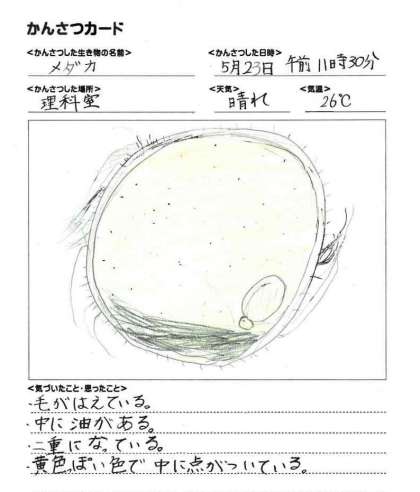 かんさつカード
<かんさつした生き物の名前> <かんさつした日時>
メダカ 5月23日 午前11時30分
<かんさつした場所> <天気> <気温>
理科室 晴れ 26℃
<気づいたこと・思ったこと>
・毛がはえている。
・中に油がある。
・二重になっている。
・黄色っぽい色で中に点がついている。